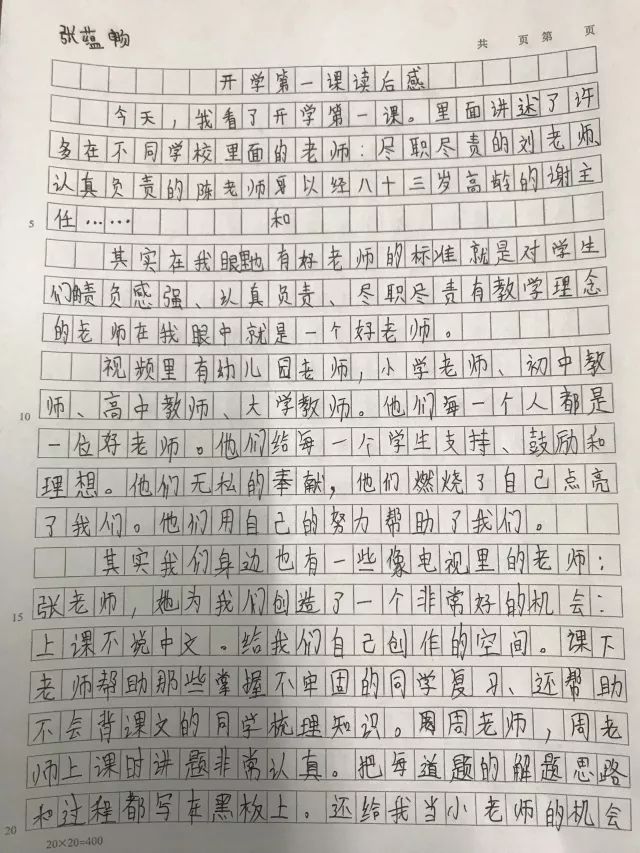 张蕴畅
共 页 第 页
开学第一课读后感
今天，我看了开学第一课。里面讲述了许
多在不同学校里面的老师：尽职尽责的刘老师、
认真负责的陈老师和以经八十三岁高龄的谢主
5 任……
其实在我眼里也有好老师的标准就是对学生
们负责感强、认真负责、尽职尽责有教学理念
的老师在我眼中就是一个好老师。
视频里有幼儿园老师，小学老师、初中教
10 师、高中教师、大学教师。他们每一个人都是
一位好老师。他们给每一个学生支持、鼓励和
理想。他们无私的奉献，他们燃烧了自己点亮
了我们。他们用自己的努力帮助了我们。
其实我们身边也有一些像电视里的老师：
15 张老师，她为我们创造了一个非常好的机会：
上课不说中文。给我们自己创作的空间。课下
老师帮助那些掌握不牢固的同学复习、还帮助
不会背课文的同学梳理知识。周老师，周老
师上课时讲题非常认真。把每道题的解题思路
20 和过程都写在黑板上。还给我当小老师的机会
20×20=400